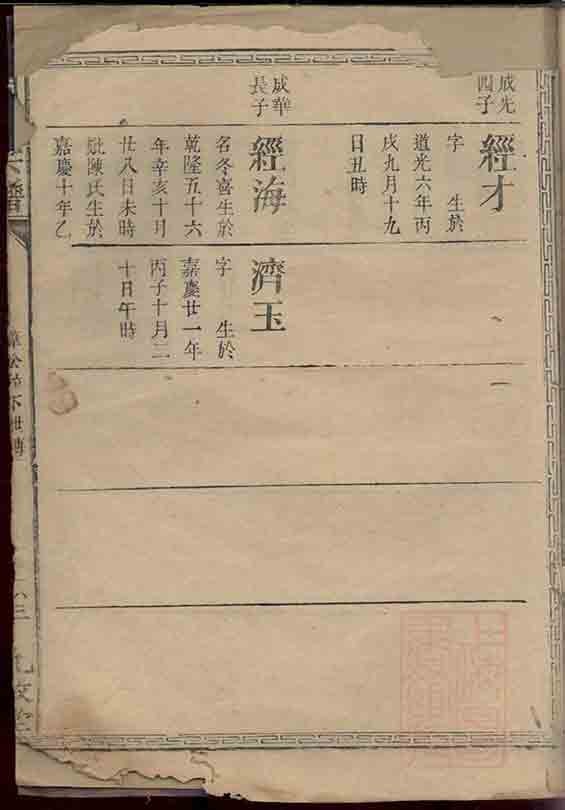 成先
四子
經才
字　生於
道光六年丙
戌九月十九
日丑時
成華
長子
經海
名冬喜生於
乾隆五十六
年辛亥十月
廿八日未時
妣陳氏生於
嘉慶十年乙
濟玉
字　生於
嘉慶廿一年
丙子十月二
十日午時
譜